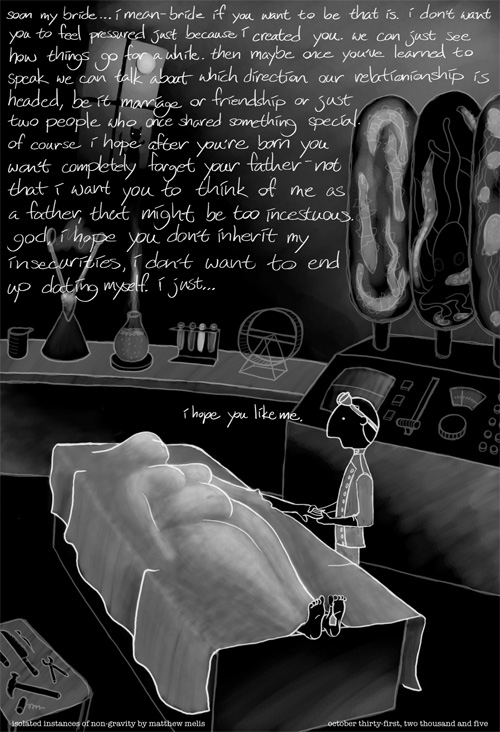 soon my bride....i mean-bride if you want to be that is. i don't want
you to feel pressured just because i created you. we can just see
how things go for a while. then maybe once you've learned to
speak we can talk about which direction our relationionship is
headed, be it marriage or friendship or just
two people who once shared something special.
of course i hope after you're born you
won't completely forget your father-not
that i want you to think of me as
a father, that might be too incestuous.
god, i hope you don't inherit my
insecurities, i don't want to end
up dating myself. i just...
i hope you like me.
isolated instances of non-gravity by matthew melis
october thirty-first, two thousand and five